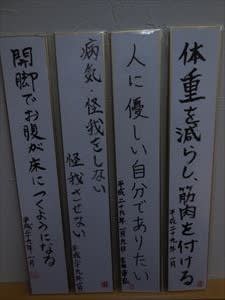 体重を減らし、筋肉を付ける
平成二十九年一月
人に優しい自分でありたい
平成二十九年一月九日
病気・怪我をしない
怪我させない
平成二十九年一月
開脚でお腹が床につくようになる
平成二十九年一月